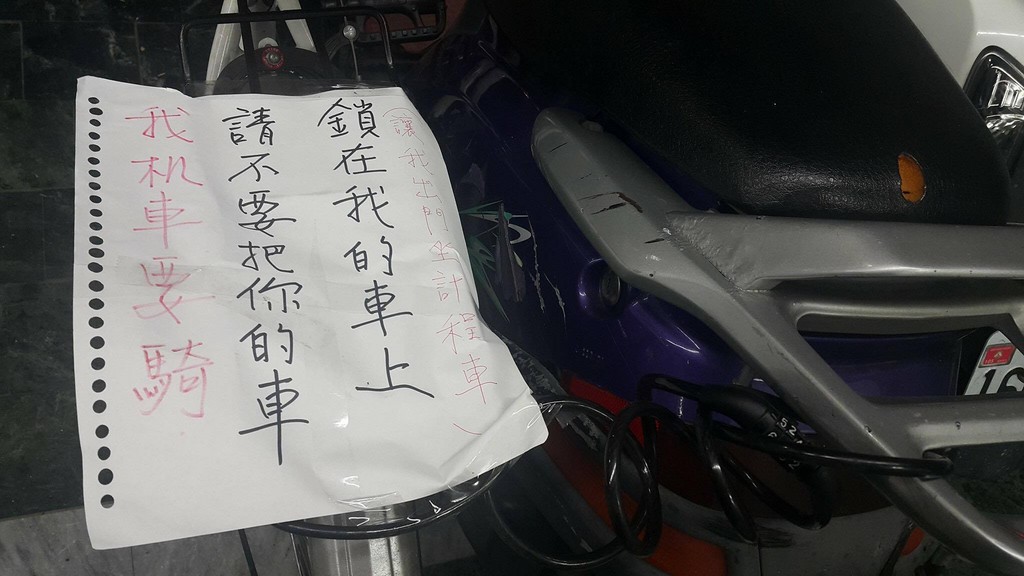 我机車要騎
請不要把你的車
鎖在我的車上
(讓我出門坐計程車)